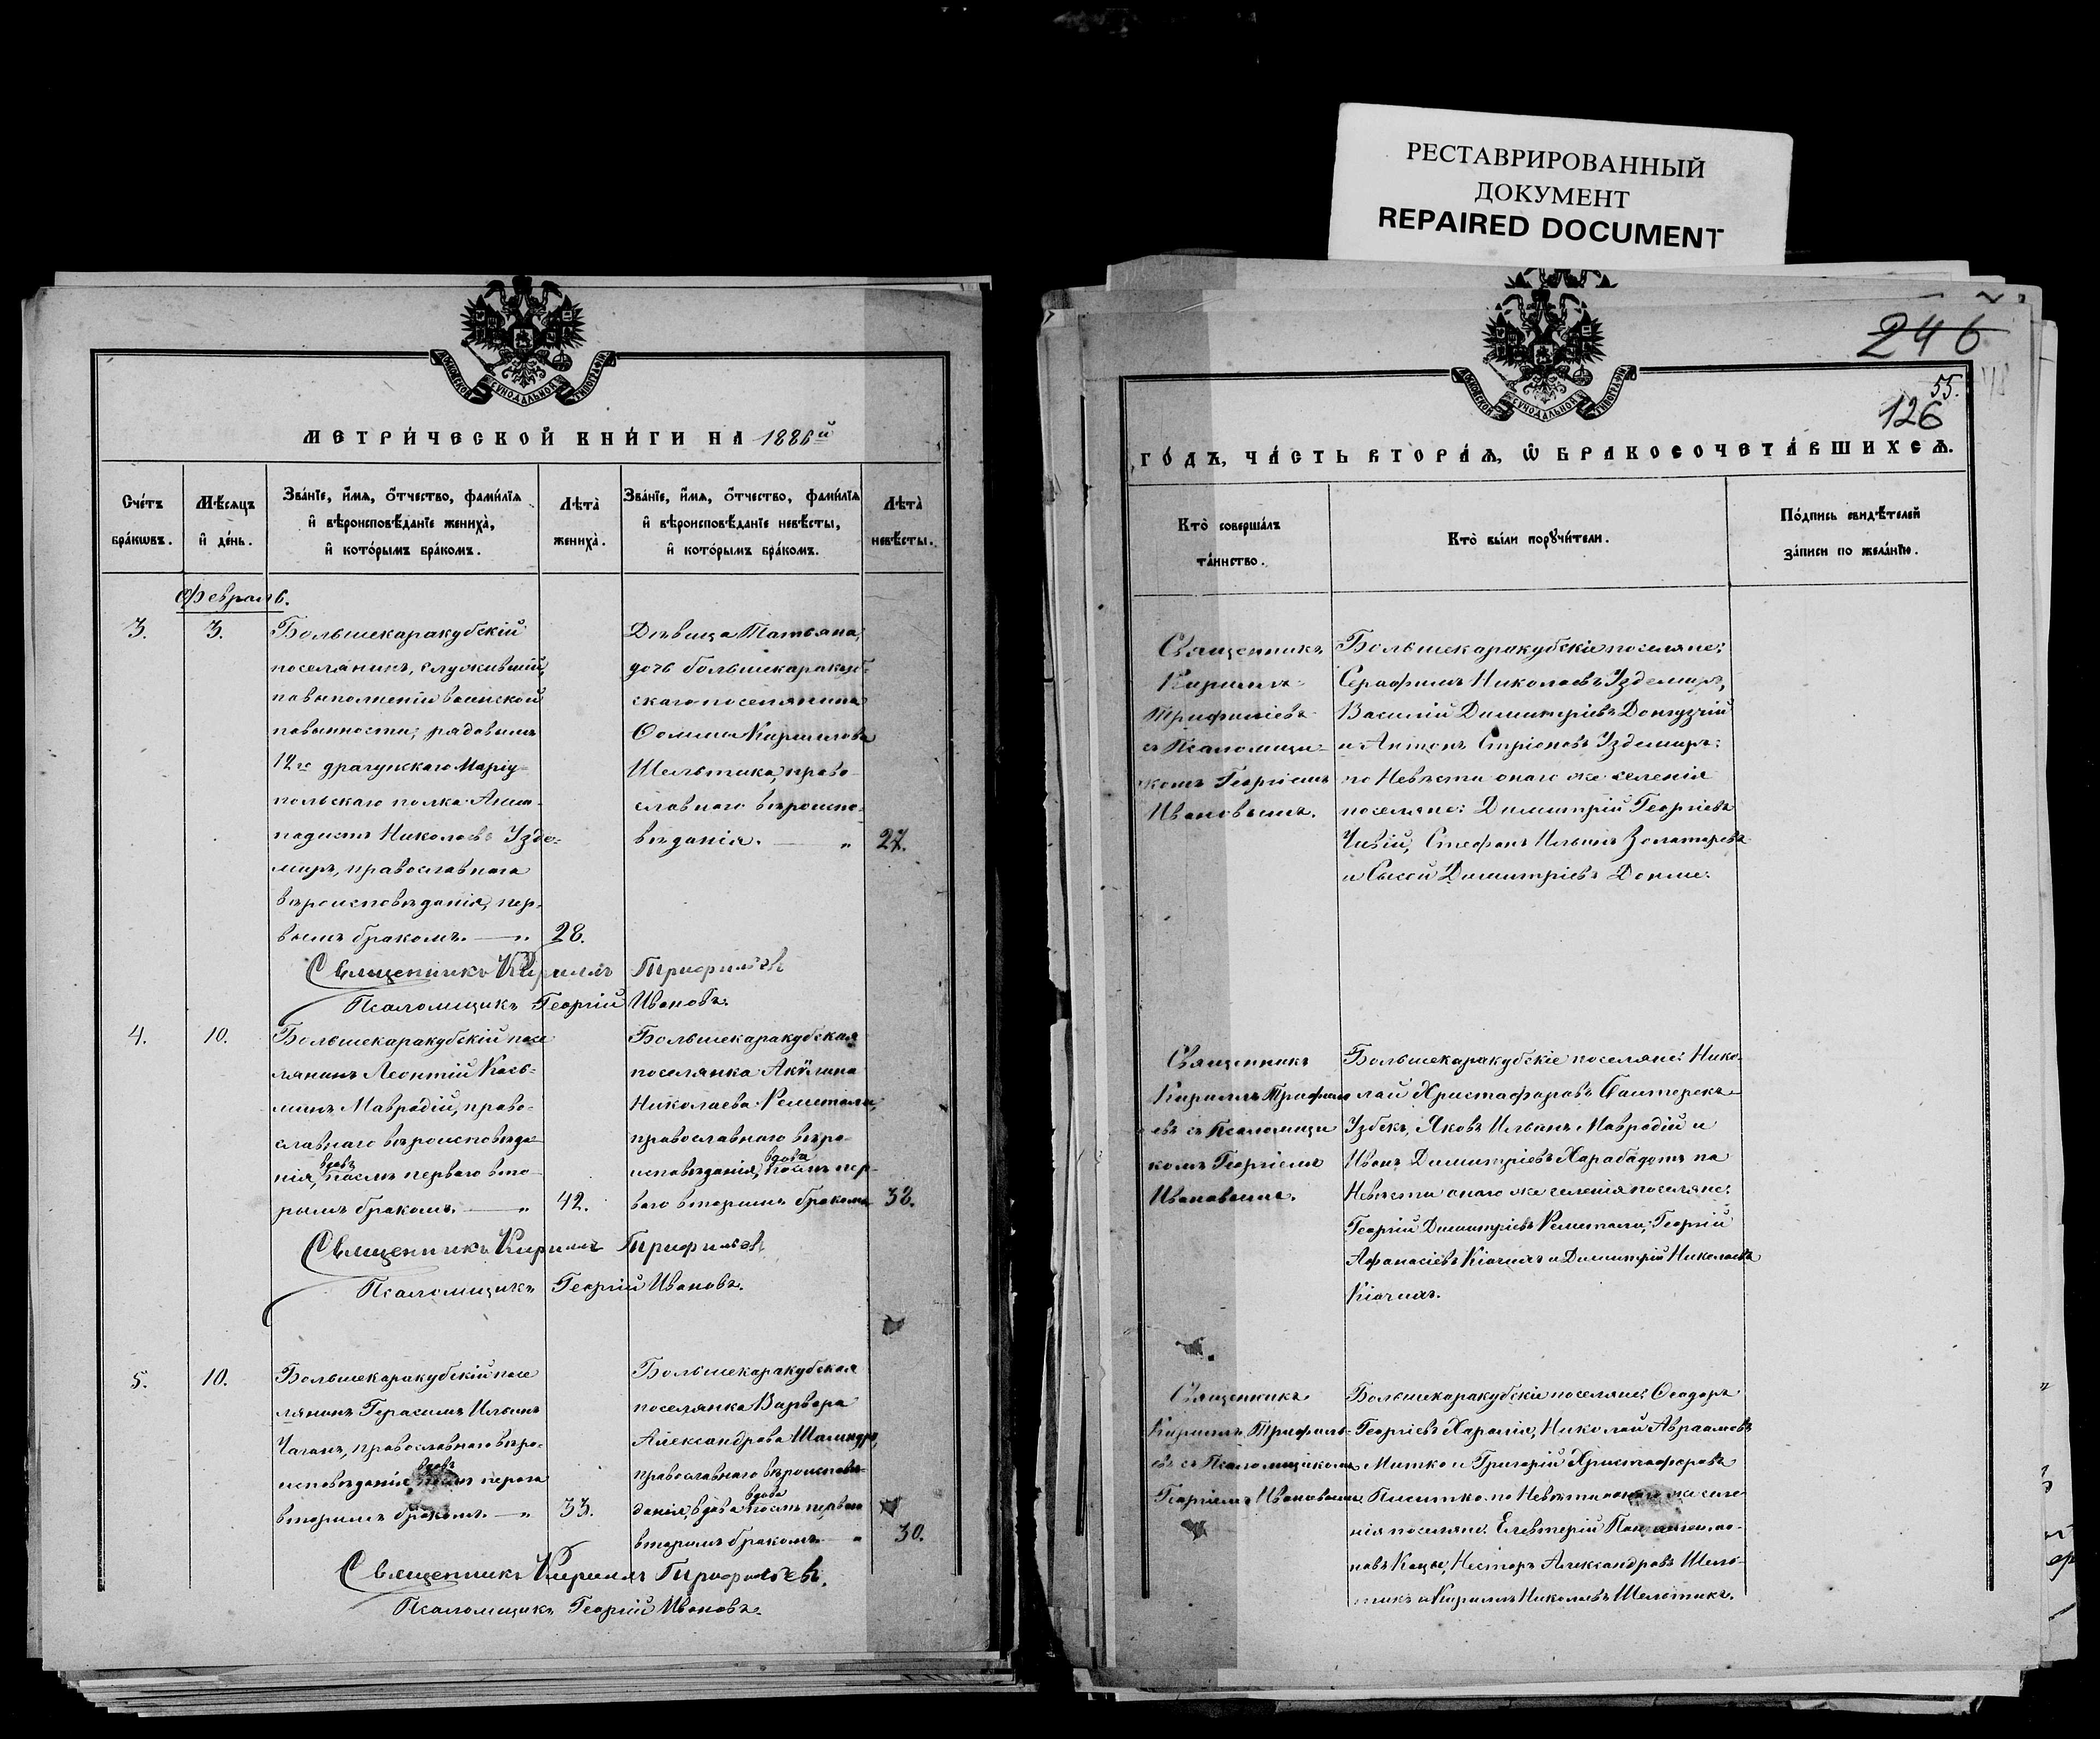 РЕСТАВРИРОВАННЫЙ
ДОКУМЕНТ
REPAIRED DOCUMENT
МОСКОВСКОЙ СѴНОДАЛЬНОЙ ТИПОГРАФІИ
МЕТРИ́ЧЕСКОЙ КНИ́ГИ НА 1886й
Сче́тъ бра́кѡвъ.
Мѣ́сяцъ и҆ де́нь.
Зва́нїе, и҆́мѧ, ѻ҆́тчество, фами́лїѧ
и҆ вѣроисповѣ́данїе жениха̀,
и҆ кото́рымъ бра́комъ.
Лѣта̀ жениха̀.
Зва́нїе, и҆́мѧ, ѻ҆́тчество, фами́лїѧ
и҆ вѣроисповѣ́данїе невѣ́сты,
и҆ кото́рымъ бра́комъ.
Лѣта̀ невѣ́сты.
Февраль.
3. 3.
Большекаракубскій
поселянинъ, служившій,
по выполненіи воинской
повинности, рядовымъ
12го драгунскаго Маріу-
польскаго полка
Николаевъ Узде-
миръ, православнаго
вѣроисповѣданія, пер-
вымъ бракомъ. — „ 28.
Дѣвица Татьяна,
дочь большекаракуб-
скаго поселянина
Ѳомы Кириллова
Шельтика, право-
славнаго вѣроиспо-
вѣданія. — „ 27.
Священникъ Кириллъ Трифильевъ
Псаломщикъ Георгій Ивановъ.
4. 10.
Большекаракубскій посе
лянинъ Леонтій Кось-
минъ Маврадій, право-
славнаго вѣроисповѣда
нія, вдовъ послѣ перваго вто-
рымъ бракомъ. — „ 42.
Большекаракубская
поселянка Акулина
Николаева
православнаго вѣро-
исповѣданія, вдова послѣ пер-
ваго вторымъ бракомъ 38.
Священникъ Кириллъ Трифильевъ.
Псаломщикъ Георгій Ивановъ.
5. 10.
Большекаракубскій посе
лянинъ Герасимъ Ильинъ
Чаганъ, православнаго вѣро-
исповѣданія, вдовъ послѣ
вторымъ бракомъ. — „ 33.
Большекаракубская
поселянка Варвара
Александрова
православнаго вѣроисповѣ-
данія, вдова вдова послѣ перваго
вторымъ бракомъ. „ 30.
Священникъ Кириллъ Трифильевъ.
Псаломщикъ Георгій Ивановъ.
246
55.
126
МОСКОВСКОЙ СѴНОДАЛЬНОЙ ТИПОГРАФІИ
ГО́ДЪ, ЧА́СТЬ ВТОРА́Ѧ, Ѽ БРАКОСОЧЕТА́ВШИХСѦ.
Кто̀ соверша́лъ
та́инство.
Кто̀ бы́ли порꙋчи́тели.
По́дпись свидѣ́телей
за́писи по жела́нїю.
Священникъ
Кириллъ
Трифиліевъ
съ Псаломщи-
комъ Георгіемъ
Ивановымъ.
Большекаракубскіе поселяне:
Серафимъ Николаевъ Уздемиръ,
Василій Димитріевъ
и Антонъ Уздемиръ:
по Невѣсти онаго же селенія
поселяне: Димитрій Георгіевъ
Стефанъ Ильинъ Золотаревъ
и Сысой Димитріевъ
Священникъ
Кириллъ Трифиль
евъ съ Псаломщи
комъ Георгіемъ
Ивановымъ.
Большекаракубскіе поселяне: Нико-
лай Христофоровъ
Узбекъ, Яковъ Ильинъ Маврадій и
Иванъ Димитріевъ Харабадотъ по
Невѣсти онаго же селенія поселяне:
Георгій Димитріевъ Георгій
Афанасіевъ и Димитрій Николаевъ
Священникъ
Кириллъ Трифиль-
евъ съ Псаломщикомъ
Георгіемъ Ивановымъ.
Большекаракубскіе поселяне: Ѳеодоръ
Георгіевъ Николай Авраамовъ
Митко и Григорій Христофоровъ
по Невѣсти онаго же селе
нія поселяне: Елевтерій
Несторъ Александровъ Шель-
тикъ и Кириллъ Николаевъ Шельтикъ.